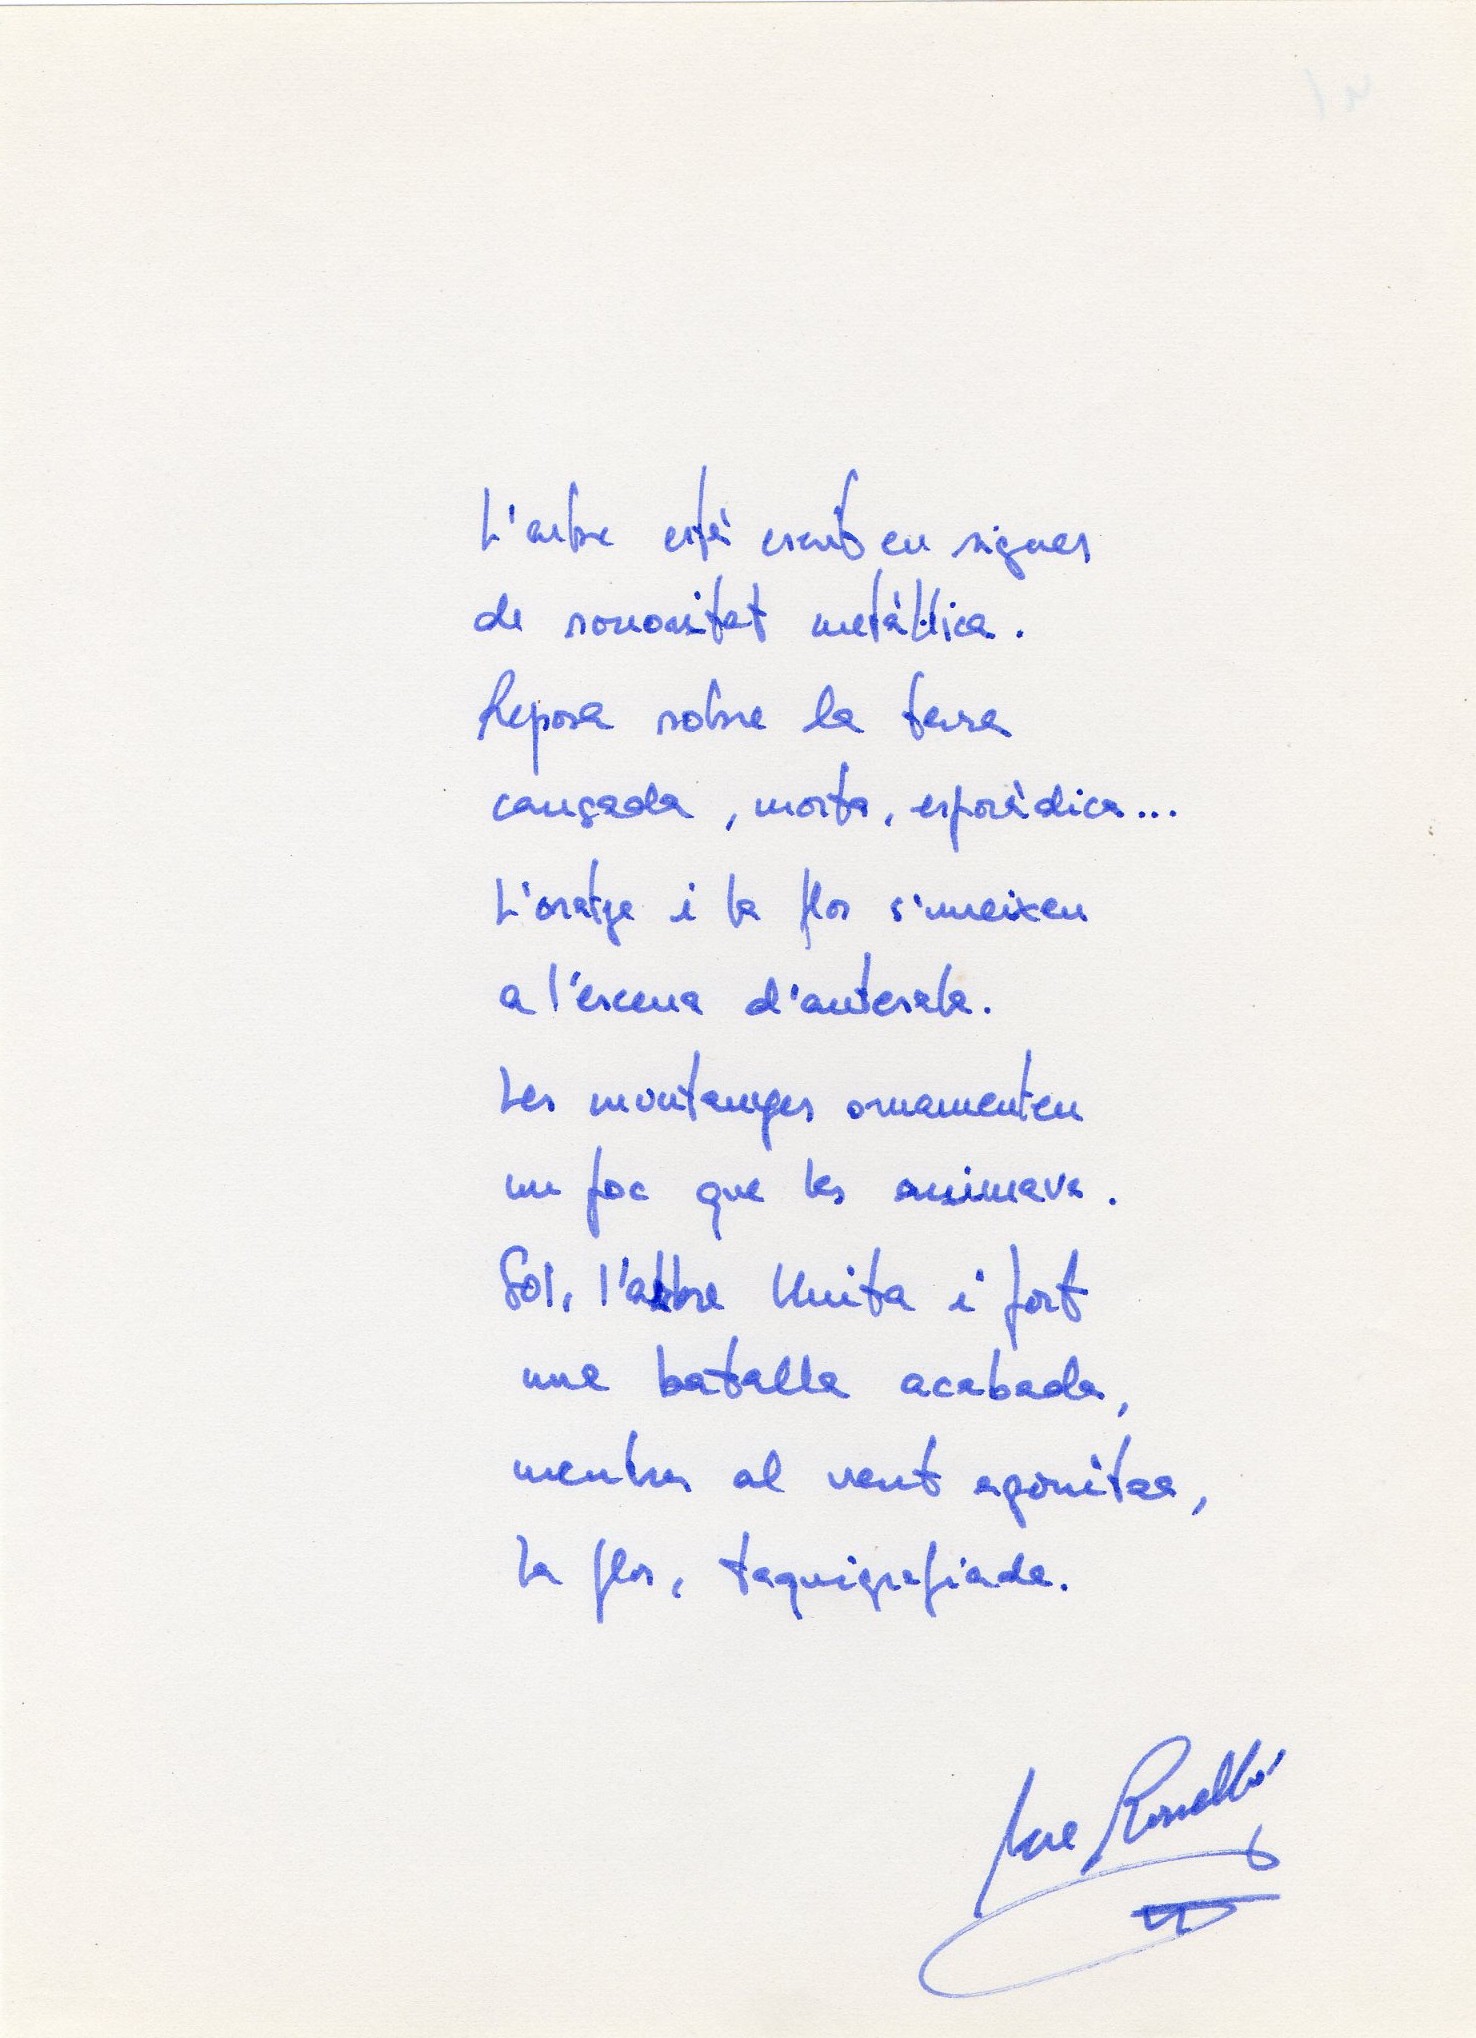 L'arbre està escrit en signes
de sonoritat metàl·lica.
Reposa sobre la terra
cansada, morta, esporàdica...
L'oratge i la flor s'uneixen
a l'escena d'antesala.
Les muntanyes ornamenten
un foc que les animava.
Sol, l'arbre lluita i fort
una batalla acabada,
mentres al vent agonitza,
la flor, taquigrafiada.
Rosselló